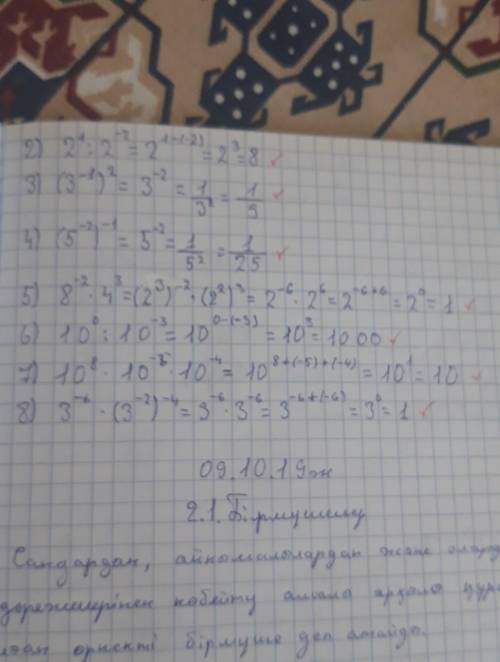 2) 2¹ : 2⁻² = 2¹⁻⁽⁻²⁾ = 2³ = 8
3) (3⁻¹)² = 3⁻² = 1/3² = 1/9
4) (5⁻²)⁻¹ = 5⁻² = 1/5² = 1/25
5) 8⁻² · 4³ = (2³)⁻² · (2²)³ = 2⁻⁶ · 2⁶ = 2⁻⁶⁺⁶ = 2⁰ = 1
6) 10⁰ : 10⁻³ = 10⁰⁻⁽⁻³⁾ = 10³ = 1000
7) 10⁸ · 10⁻⁵ · 10⁻⁴ = 10⁸⁺⁽⁻⁵⁾⁺⁽⁻⁴⁾ = 10¹ = 10
8) 3⁻⁶ · (3⁻²)⁻⁴ = 3⁻⁶ · 3⁻⁶ = 3⁻⁶⁺⁽⁻⁶⁾ = 3⁰ = 1
09.10.19ж
2.1. Бірмүшелер
Сандардан, айнымалылардан және олард
дәрежелерінен көбейту амалы арқылы құра
өрнекті бірмүше деп атайды.